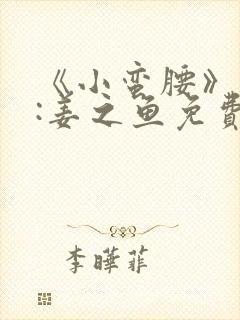 《小蛮腰》
:姜之鱼免費
李曄菲